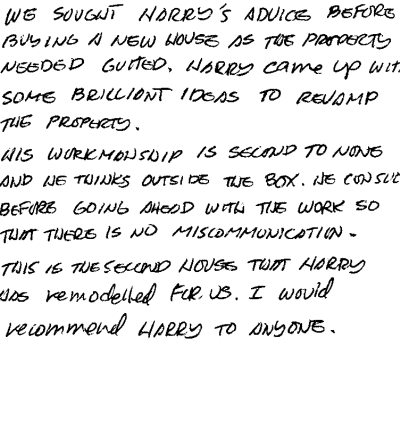 WE SOUGHT HARRY'S ADVICE BEFORE
BUYING A NEW HOUSE AS THE PROPERTY
NEEDED GUTTED. HARRY came up wit
SOME BRILLIANT IDEAS TO REVAMP
THE PROPERTY.
HIS WORKMANSHIP IS SECOND TO NONE
AND HE THINKS OUTSIDE THE BOX. HE CONSUL
BEFORE GOING AHEAD WITH THE WORK SO
THAT THERE IS NO MISCOMMUNICATION.
THIS IS THE SECOND HOUSE THAT HARRY
HAS remodelled FOR US. I would
recommend HARRY TO ANYONE.